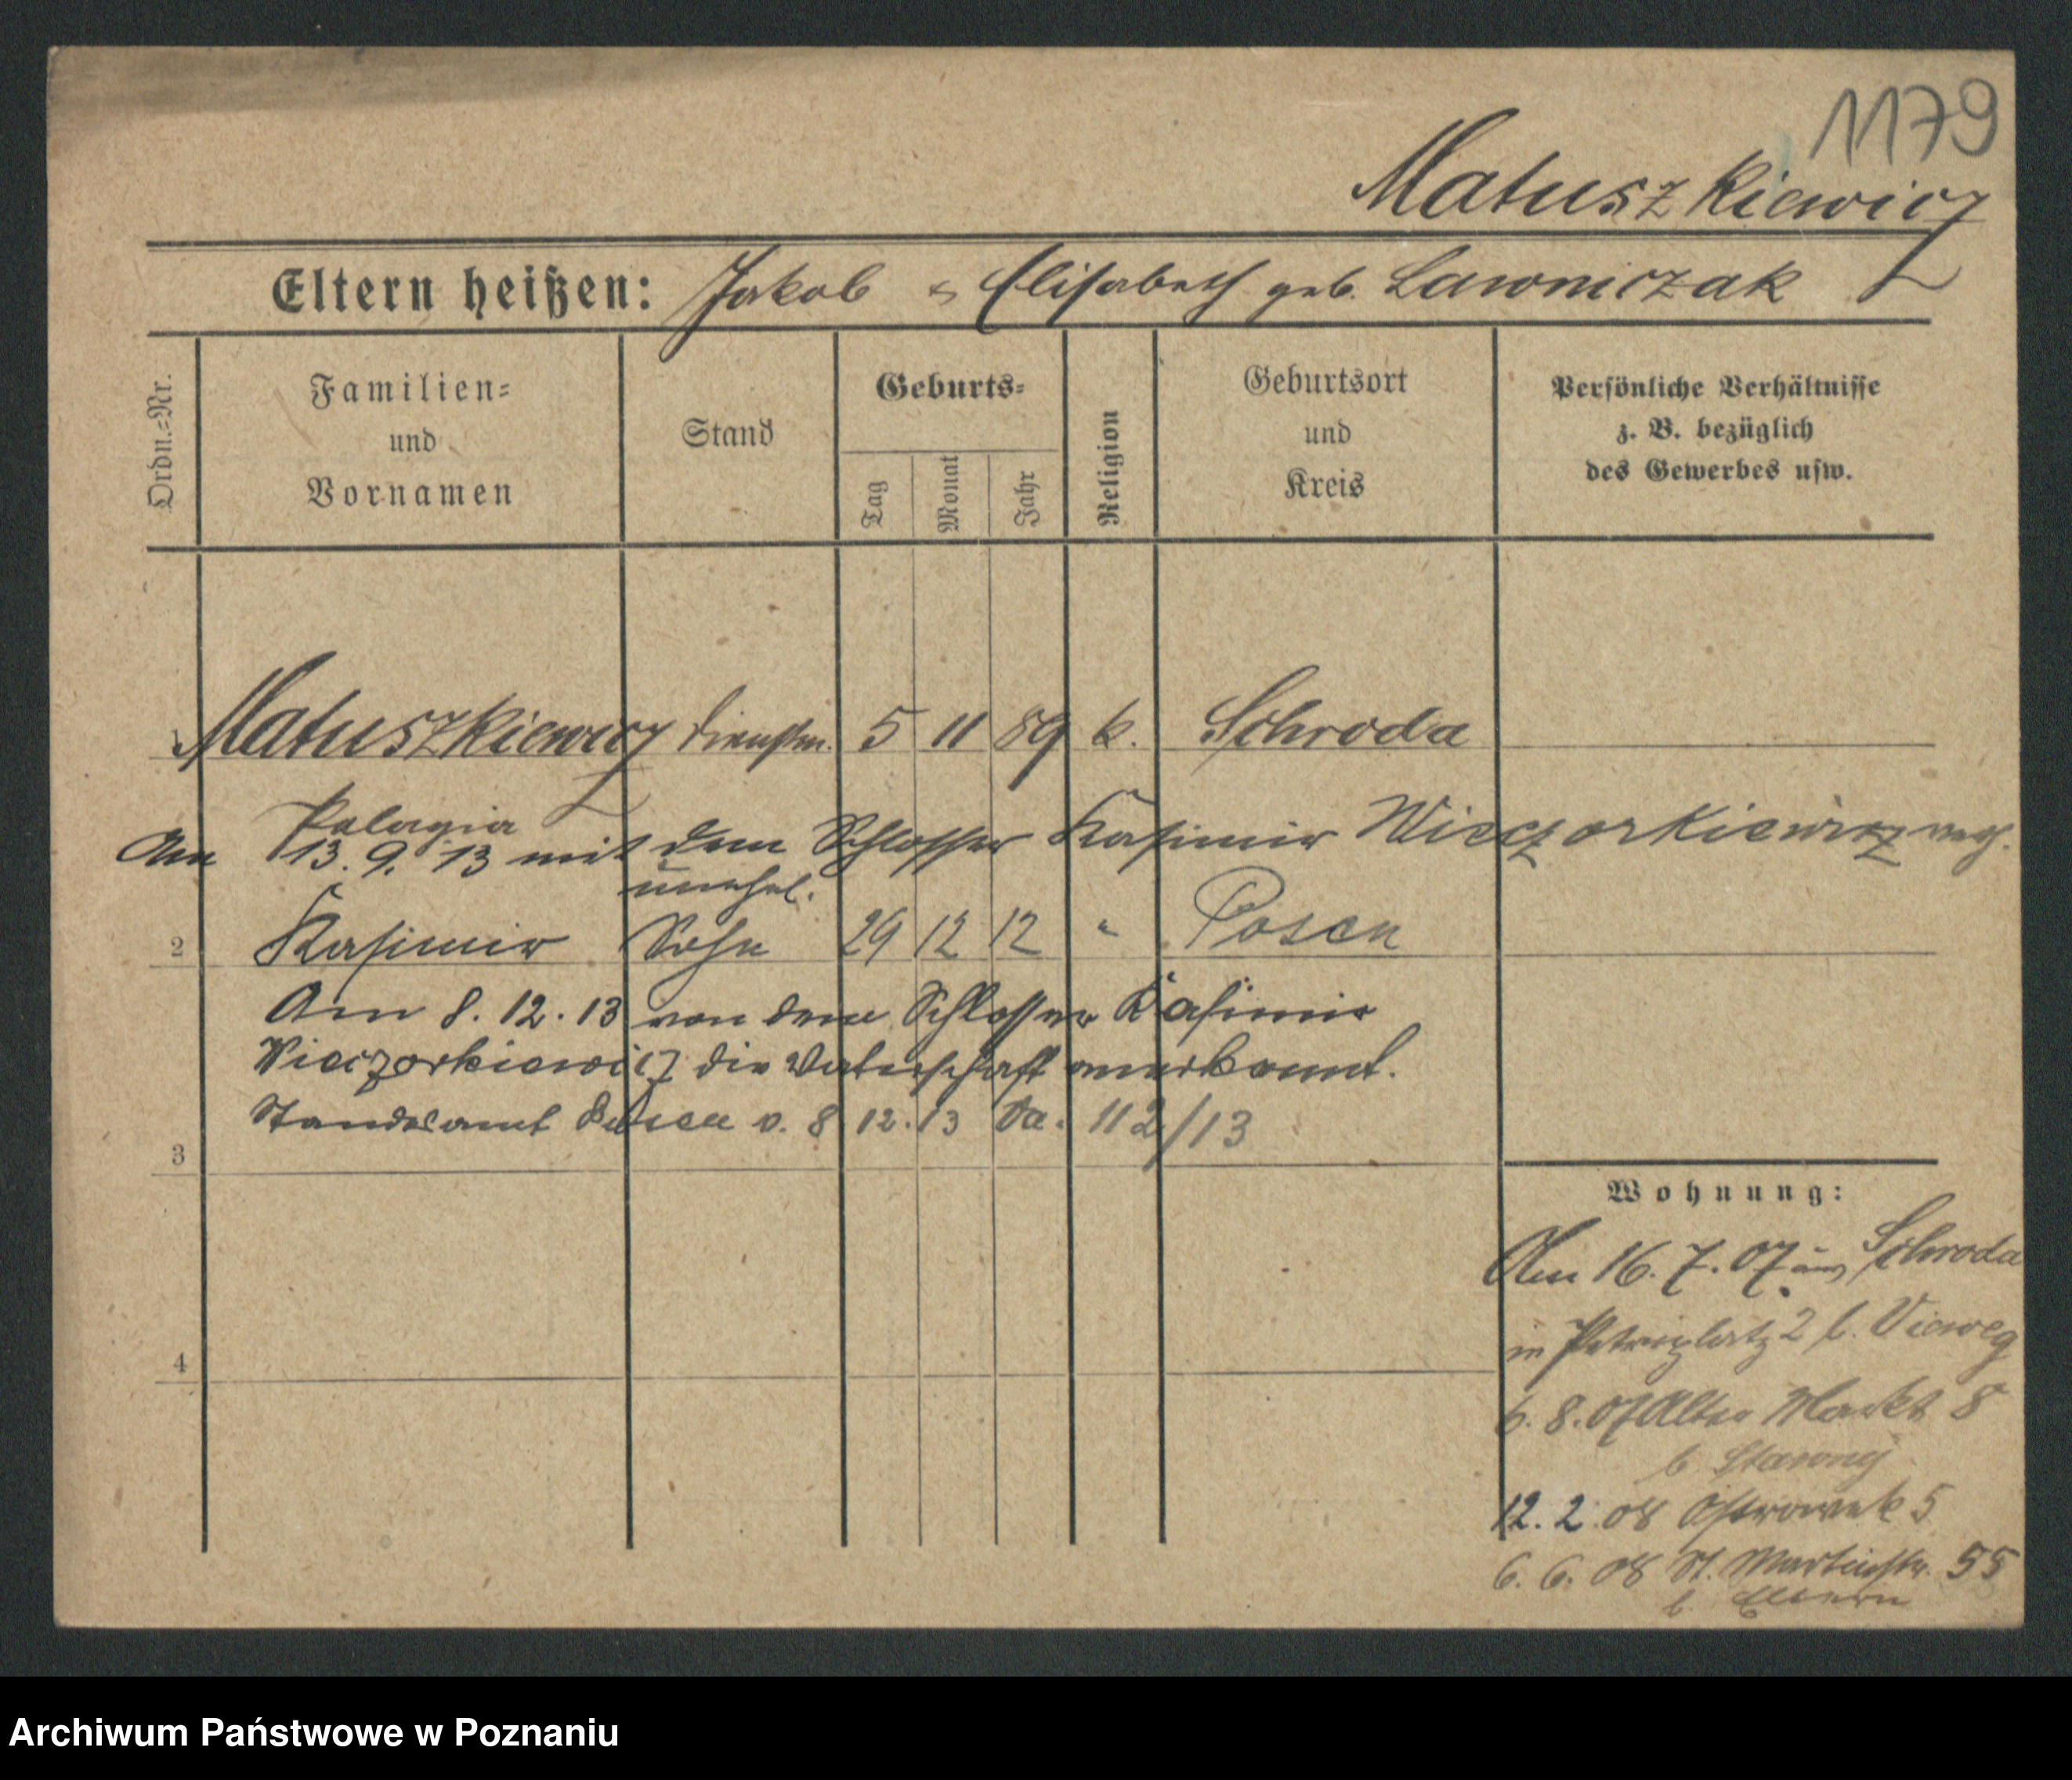 1179
Matuszkiewicz
Eltern heißen: Jakob & Elisabeth geb. Lawniczak
Ordn.-Nr.
Familien- und Vornamen
Stand
Geburts-
Tag
Monat
Jahr
Religion
Geburtsort und Kreis
Persönliche Verhältnisse
z. B. bezüglich
des Gewerbes usw.
1 Matuszkiewicz Dienstm. 5 11 89 k. Schroda
Pelagia
Am 13. 9. 13 mit dem Schlosser Kasimir Wieczorkiewicz verh.
unehel.
2 Kasimir Sohn 29 12 12 " Posen
Am 8. 12. 13 von dem Schlosser Kasimir
Wieczorkiewicz die Vaterschaft anerkannt.
Standesamt Posen v. 8. 12. 13 112/13
3
4
Wohnung:
Am 16. 7. 07 aus Schroda
in Petriplatz 2 b. Vieweg
6. 8. 07 Alter Markt 8
b.
12. 2. 08 Ostrowek 5
6. 6. 08 St. Martinstr. 55
b. Eltern
Archiwum Państwowe w Poznaniu